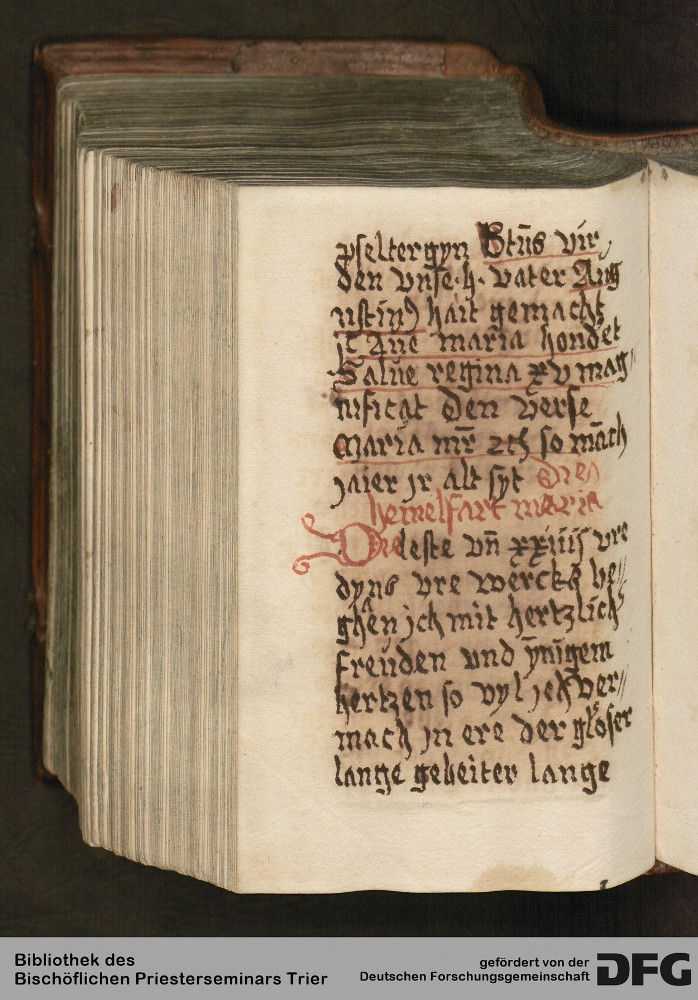 pseltergyn Btūs vir
den vnse·h· vater Aug
ustin⁹ hait gemacht
jᶜ Aue maria hondet
Salue regina xv mag
nificat den verse
maria mr̄ so māch
jaier jr alt syt Die
hemelfart maria
Die leste vn̄ xxiiij vre
dyns vre wercks be⸗
ghen jch mit hertzlich
freuden vnd ynigem
hertzen so vyl jch ver⸗
mach jn ere der
lange gebeiter lange
Bibliothek des
Bischöflichen Priesterseminars Trier
gefördert von der
Deutschen Forschungsgemeinschaft
DFG